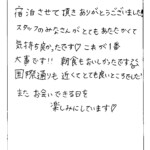 宿泊させて頂きありがとうございました!
スタッフのみなさんがとてもあたたかくて
気持ち良かったです♡ これが1番
大事です!! 朝食もおいしかったですよ
国際通りも近くてとても良いところでした!
またお会いできる日を
楽しみにしています♡